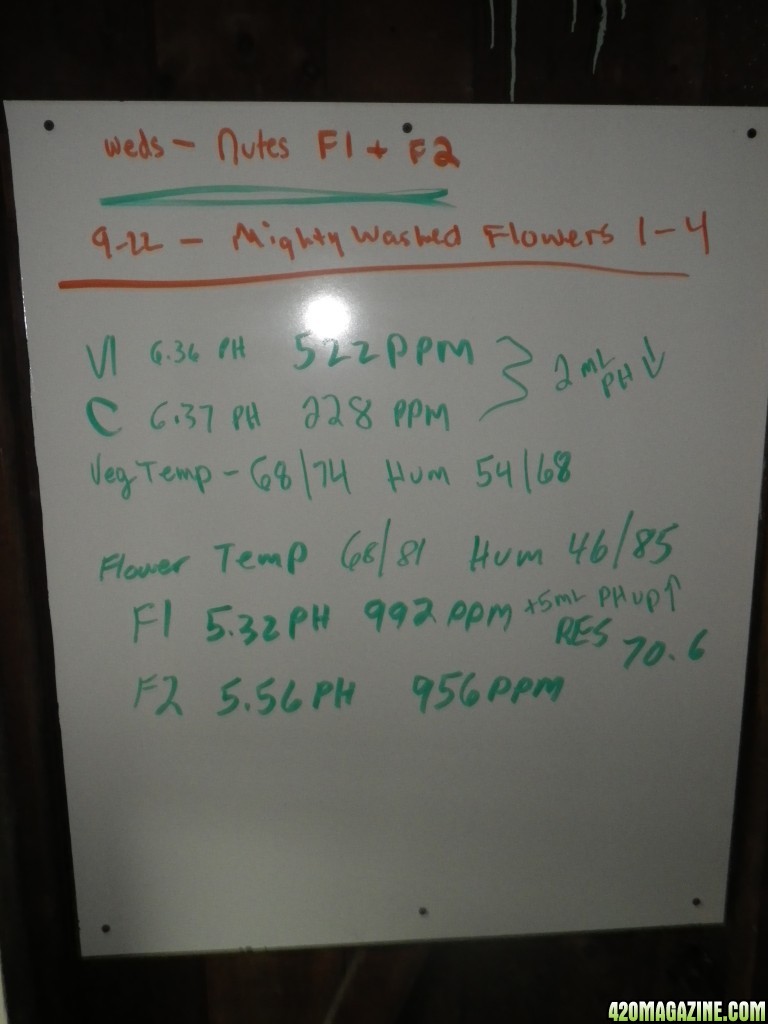 weds - Nutes F1 + F2
9-22 - Mighty Washed Flowers 1-4
V1 6.36 PH 522 PPM
C 6.37 PH 228 PPM
2 mL PH ↓
Veg Temp - 68/74 Hum 54/68
Flower Temp 68/81 Hum 46/85
F1 5.32 PH 992 PPM +5mL PH up ↑
RES 70.6
F2 5.56 PH 956 PPM
420MAGAZINE.COM